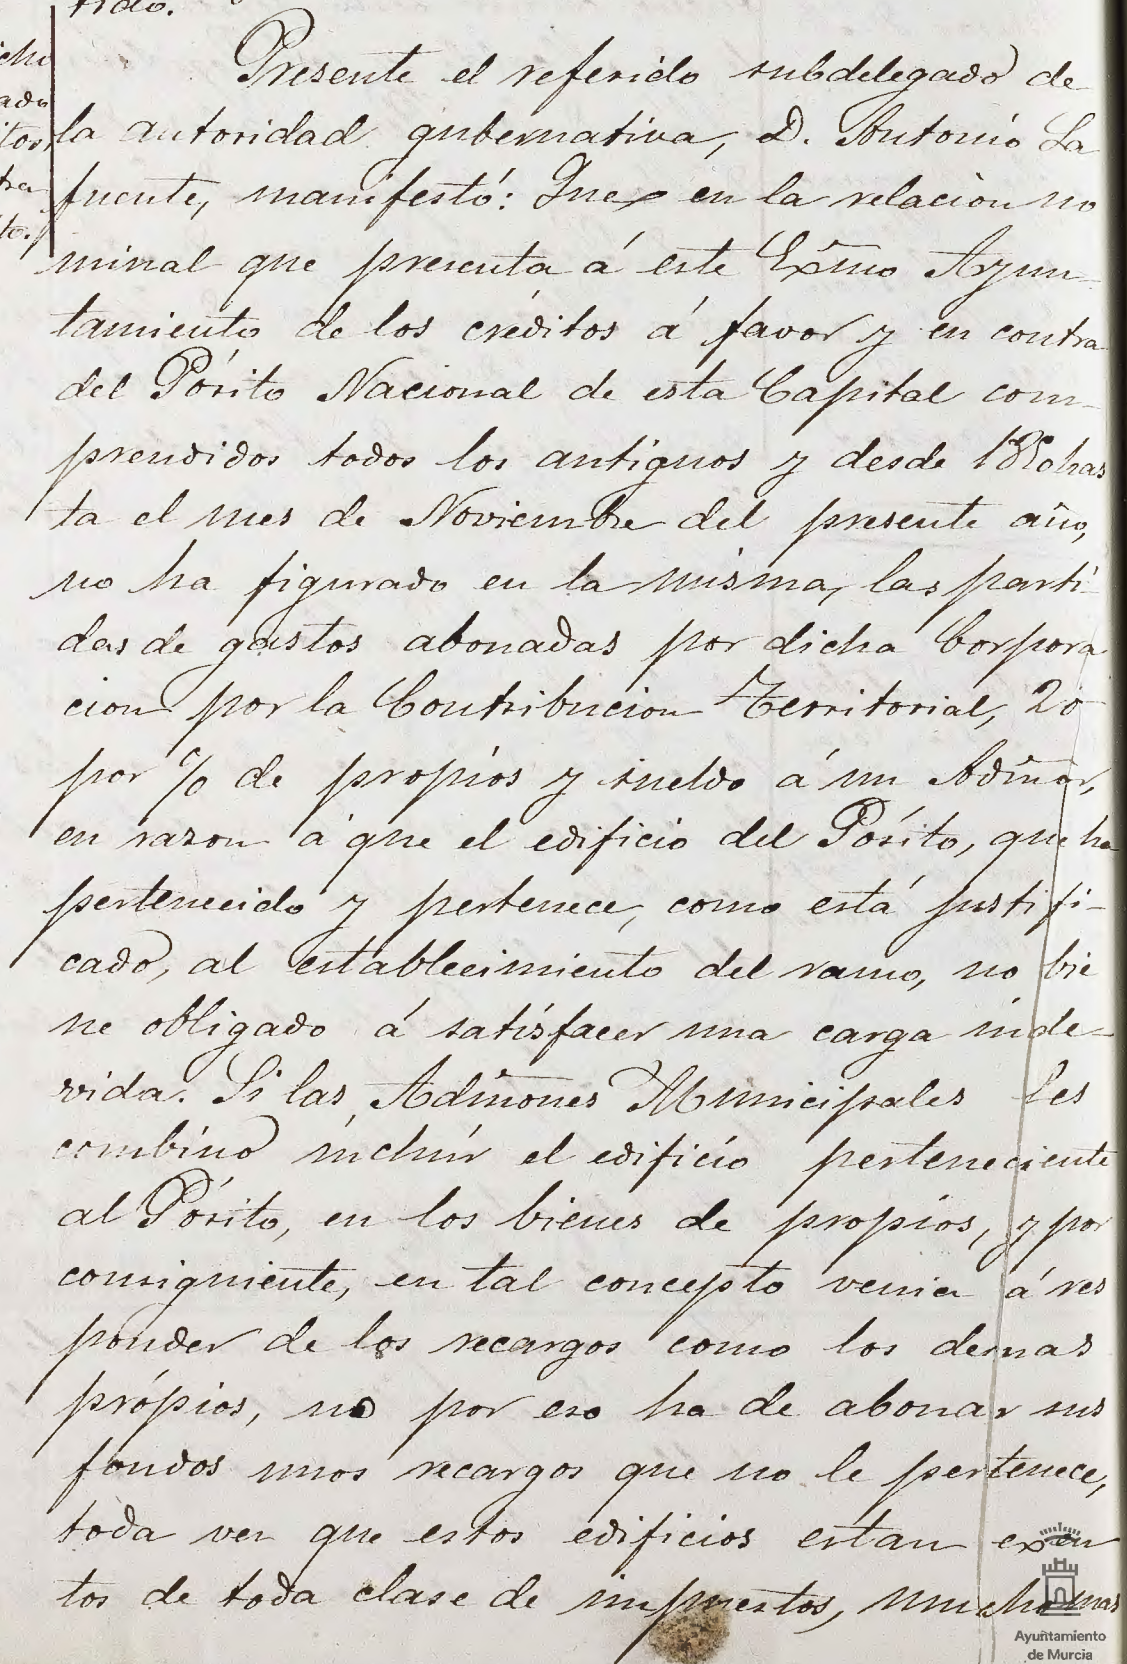 tido.
Presente el referido subdelegado de
la autoridad gubernativa, D. Antonio La
fuente, manifestó: Que en la relacion no
minal que presenta á este Exmo Ayun-
tamiento de los créditos á favor y en contra
del Pósito Nacional de esta Capital com-
prendidos todos los antiguos y desde has
ta el mes de Noviembre del presente año,
no ha figurado en la misma, las parti-
das de gastos abonadas por dicha Corpora
cion por la Contribucion Territorial, 20
por % de propios y sueldo á un Admor,
en razon á que el edificio del Pósito, que ha
pertenecido y pertenece, como está justifi-
cado, al establecimiento del ramo, no bie
ne obligado á satisfacer una carga inde-
vida. Si las Admones Municipales les
combino incluir el edificio perteneciente
al Pósito, en los bienes de propios, y por
consiguiente, en tal concepto venia á res
ponder de los recargos como los demas
própios, no por eso ha de abonar sus
fondos unos recargos que no le pertenece,
toda vez que estos edificios estan exen
tos de toda clase de impuestos, mucho mas
Ayuntamiento
de Murcia